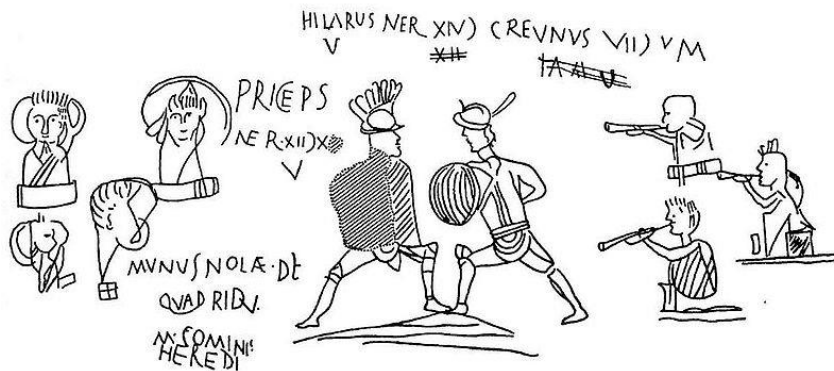 HILARUS NER XIV) CREUNUS VII) V M
V XII
PRICEPS
NER·XII)X
V
MUNUS NOLÆ·DE
QUADRIDU.
M·COMINI
HEREDI